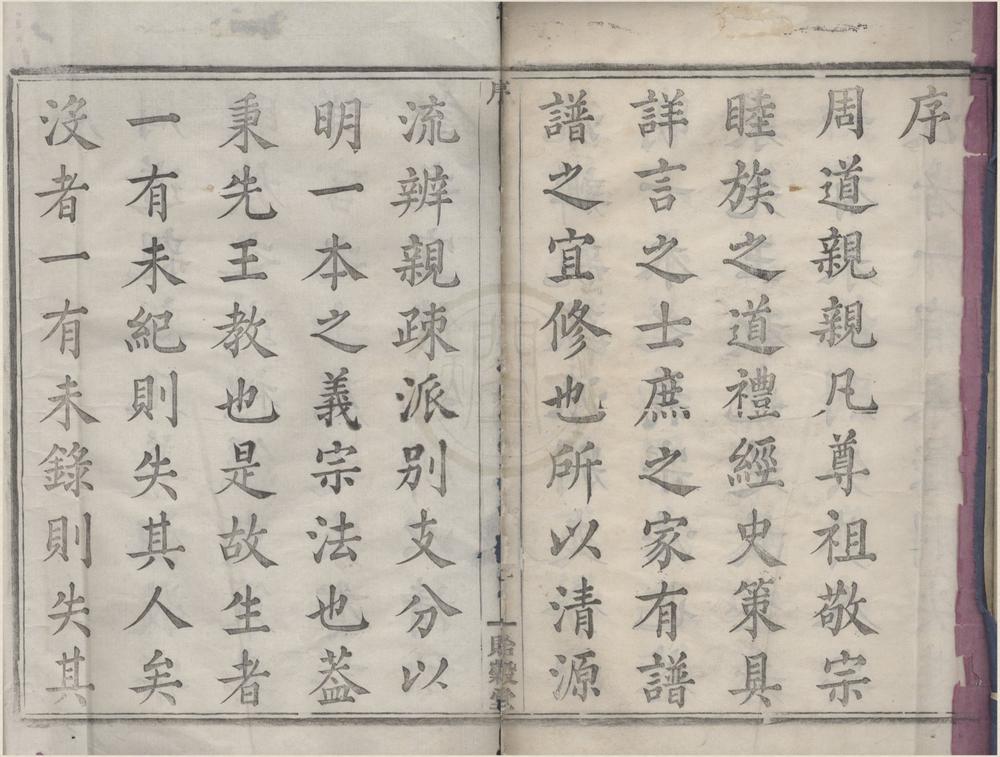 序
周道親親凡尊祖敬宗
睦族之道禮經史策具
詳言之士庶之家有譜
譜之宜修也所以清源
序
一
貽穀堂
流辨親疎派别支分以
明一本之義宗法也葢
秉先王教也是故生者
一有未紀則失其人矣
沒者一有未錄則失其